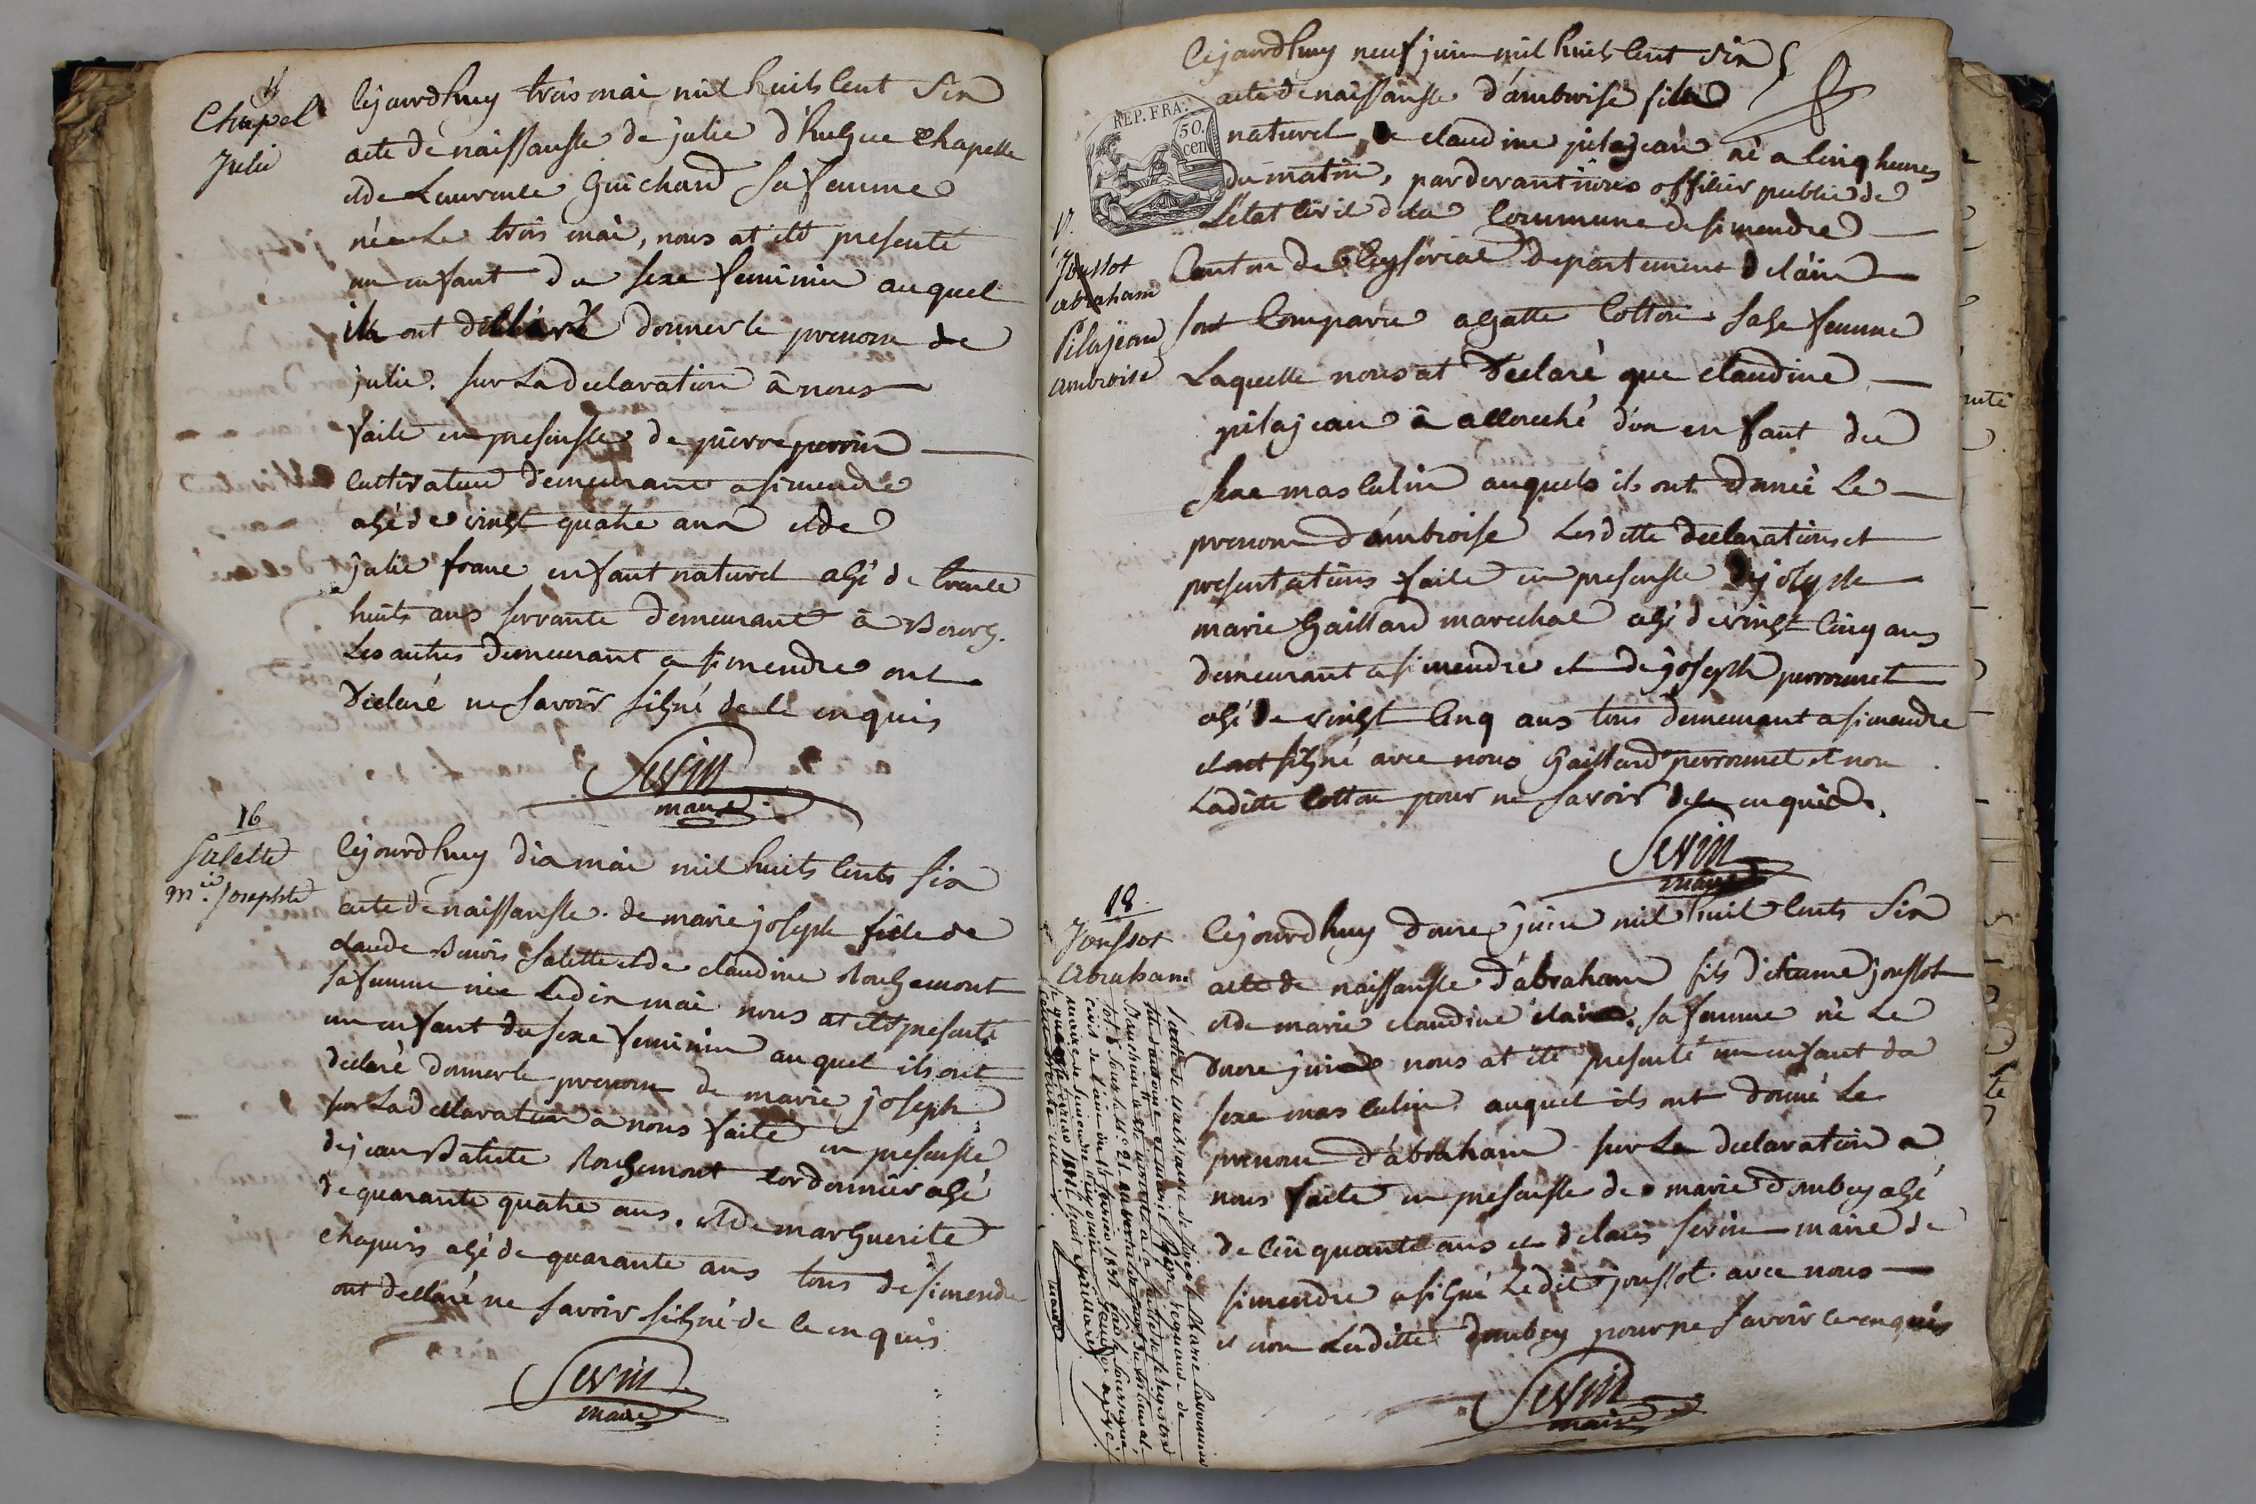 Chapel
Julie
Cejourdhuy trois mai mil huits Cent Six
acte de naissansse de julie d'hugue Chapelle
et de Laurence Guichard sa femme
née Le trois mai, nous at été presenté
un enfant du sexe feminin auquel
ils ont déclaré donner le prenom de
julie. sur La declaration à nous
faite en presensse de pierre perrin
Cultivateur demeurant a simendre
agé de vingt quatre ans et de
julie franc enfant naturel agé de trente
huits ans servante demeurant à Bourg.
Les autres demeurant a simendre ont
Déclaré ne savoir signé de ce enquis
Sevin
maire
16
Salette
M.ie Josephte
Cejourdhuy dix mai mil huits Cents six
acte de naissansse de marie joseph fille de
claude Salette et de claudine Rougemont
sa femme née Le dix mai nous at été presenté
un enfant du sexe feminin auquel ils ont
declaré donner le prenom de marie joseph
sur La declaration à nous faite en présensse
de jean Batiste Rougemont Cordonnier agé
de quarante quatre ans. et de marguerite
chapuis agé de quarante ans tous de simendre
ont declaré ne savoir signé de ce enquis
Sevin
maire
Cejourdhuy neuf juin mil huits Cent Six
acte de naissansse d'ambroise fils
naturel de claudine pilajean né a Cinq heures
du matin, pardevant nous officier public de
L'état Civil de la Commune de simendre
Canton de Ceyseriat departement de l'ain
REP. FRA.
50.
cen
17.
Joussot
abraham
Pilajean
ambroise
sont Comparu agatte Cotton sage femme
Laquelle nous at declaré que claudine
pilajean à accouché d'un enfant du
sexe masculin auquels ils ont donné Le
prenom d'ambroise Lesditte declarations et
presentations faite en presensse de joseph
marie Gaillard marechal agé de vingt Cinq ans
demeurant a simendre et de joseph perronnet
agé de vingt Cinq ans tous demeurant a simendre
et ont signé avec nous Gaillard perronnet et non
Laditte Cotton pour ne savoir de ce enquise.
Sevin
maire
18
Joussot
Abraham
Cejourdhuy douze juin mil huit Cents Six
acte de naissansse d'abraham fils d'etienne joussot
et de marie claudine sa femme né Le
douze juin nous at été presenté un enfant du
sexe masculin auquel ils ont donné Le
prenom d'abraham sur La declaration a
nous faite en presensse de marie doubey agé
de Cinquante ans et de Sevin maire de
simendre a signé Ledit joussot avec nous
et non Laditte doubey pour ne savoir ce enquis
Sevin
maire